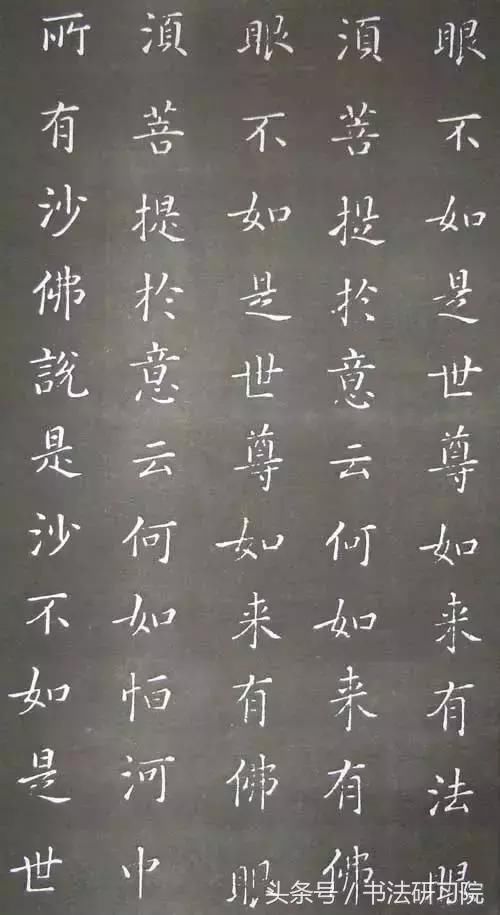 眼不如是世尊如来有法眼
須菩提於意云何如来有佛
眼不如是世尊如来有佛眼
須菩提於意云何如恒河中
所有沙佛說是沙不如是世
头条号 / 书法研习院